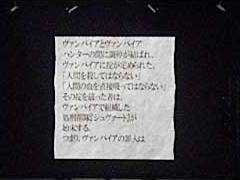 ヴァンパイアとヴァンパイア
ハンターの間に調停が結ばれ、
ヴァンパイアに掟が定められた。
「人間を殺してはならない」
「人間の血を直接吸ってはならない」
その掟を破った者は、
ヴァンパイアで組織した
処刑部隊『シュヴァート』が
始末する。
つまり、ヴァンパイアの罪人は